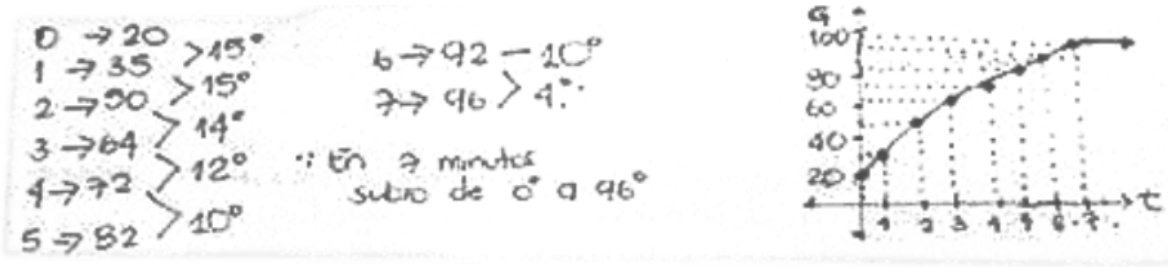 0 → 20
> 15°
1 → 35
> 15°
2 → 50
> 14°
3 → 64
> 12°
4 → 72
> 10°
5 → 82
6 → 92 — 10°
7 → 96 > 4°.
∵ En 7 minutos
subio de 0° a 96°
G
100
80
60
40
20
1 2 3 4 5 6 7 t